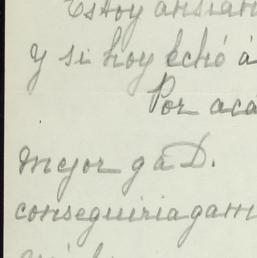 Estoy ansian
y si hoy echó á
Por acá
mejor g a D.
conseguiria gam